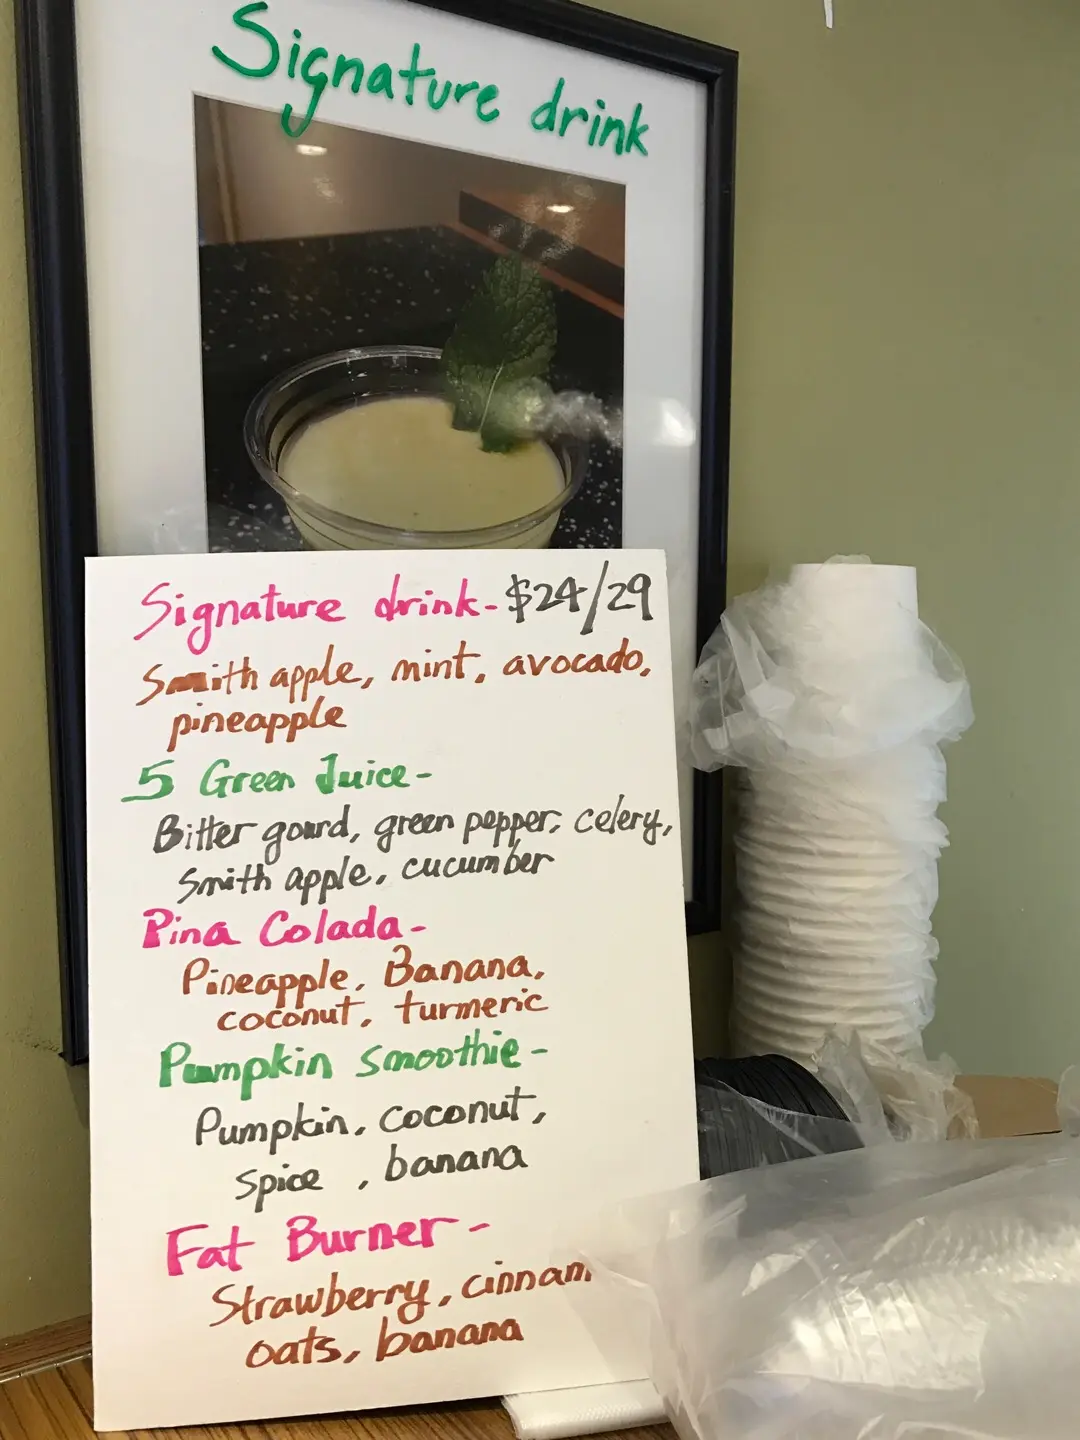 Signature drink
Signature drink - $24/29
Smith apple, mint, avocado,
pineapple
5 Green Juice -
Bitter gourd, green pepper, celery,
Smith apple, cucumber
Pina Colada -
Pineapple, Banana,
coconut, turmeric
Pumpkin smoothie -
Pumpkin, coconut,
spice , banana
Fat Burner -
Strawberry, cinnam
oats, banana